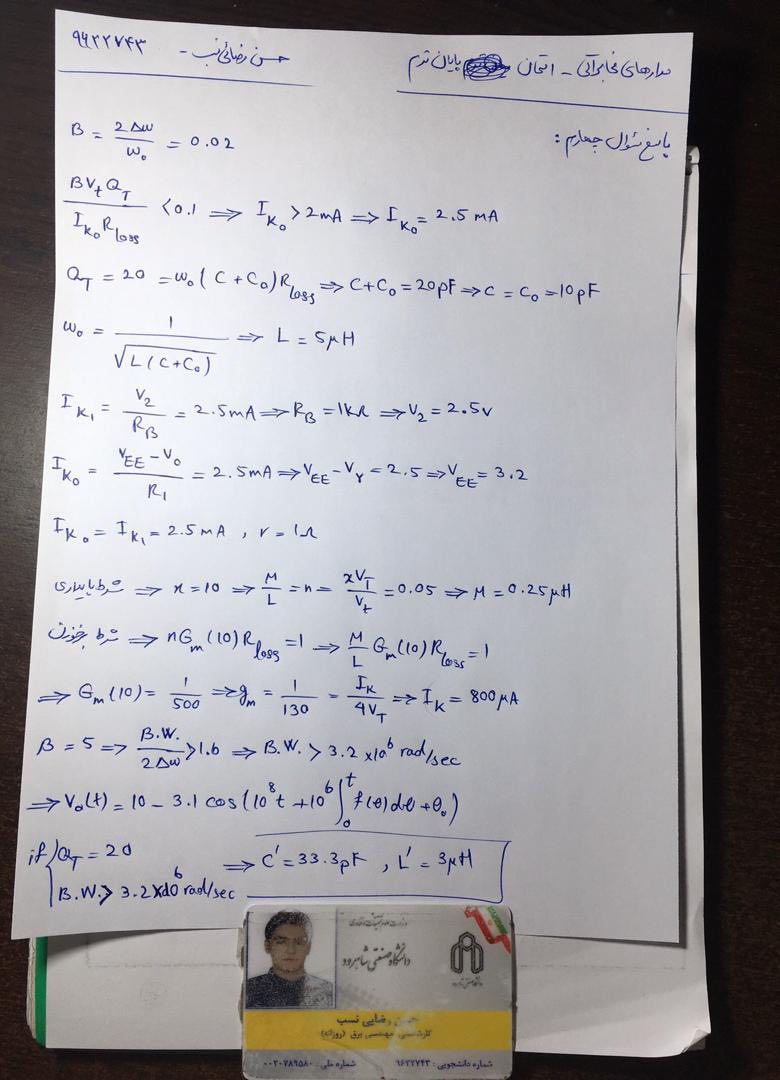 مدارهای مخابراتی - امتحان پایان ترم
حسن رضائی نسب - ۹۶۲۲۷۴۳
پاسخ سؤال چهارم :
B = 2Δω/ω₀ = 0.02
BV_tQ_T/I_K₀R_loss < 0.1 ⇒ I_K₀ > 2mA ⇒ I_K₀ = 2.5 mA
Q_T = 20 = ω₀(C + C₀)R_loss ⇒ C+C₀ = 20pF ⇒ C = C₀ = 10pF
ω₀ = 1/√L(C+C₀) ⇒ L = 5μH
I_K₁ = V₂/R_B = 2.5mA ⇒ R_B = 1kΩ ⇒ V₂ = 2.5v
I_K₀ = V_EE - V₀/R₁ = 2.5mA ⇒ V_EE - V_γ = 2.5 ⇒ V_EE = 3.2
I_K₀ = I_K₁ = 2.5 mA , r = 1Ω
شرط پایداری ⇒ x = 10 ⇒ M/L = n = xV_T/V_t = 0.05 ⇒ M = 0.25μH
شرط ⇒ nG_m(10)R_loss = 1 ⇒ M/L G_m(10)R_loss = 1
⇒ G_m(10) = 1/500 ⇒ g_m = 1/130 = I_K/4V_T ⇒ I_K = 800μA
β = 5 ⇒ B.W./2Δω > 1.6 ⇒ B.W. > 3.2 x10⁶ rad/sec
⇒ V₀(t) = 10 - 3.1 cos(10⁸t + 10⁶∫₀ᵗ f(θ)dθ + θ₀)
if { Q_T = 20 ⇒ C' = 33.3pF , L' = 3μH
B.W. > 3.2x10⁶ rad/sec
دانشگاه صنعتی شاهرود
حسن رضایی نسب
کارشناسی مهندسی برق (روزانه)
شماره دانشجویی : ۹۶۲۲۷۴۳
شماره ملی : ۰۰۲۰۷۸۹۵۸۰